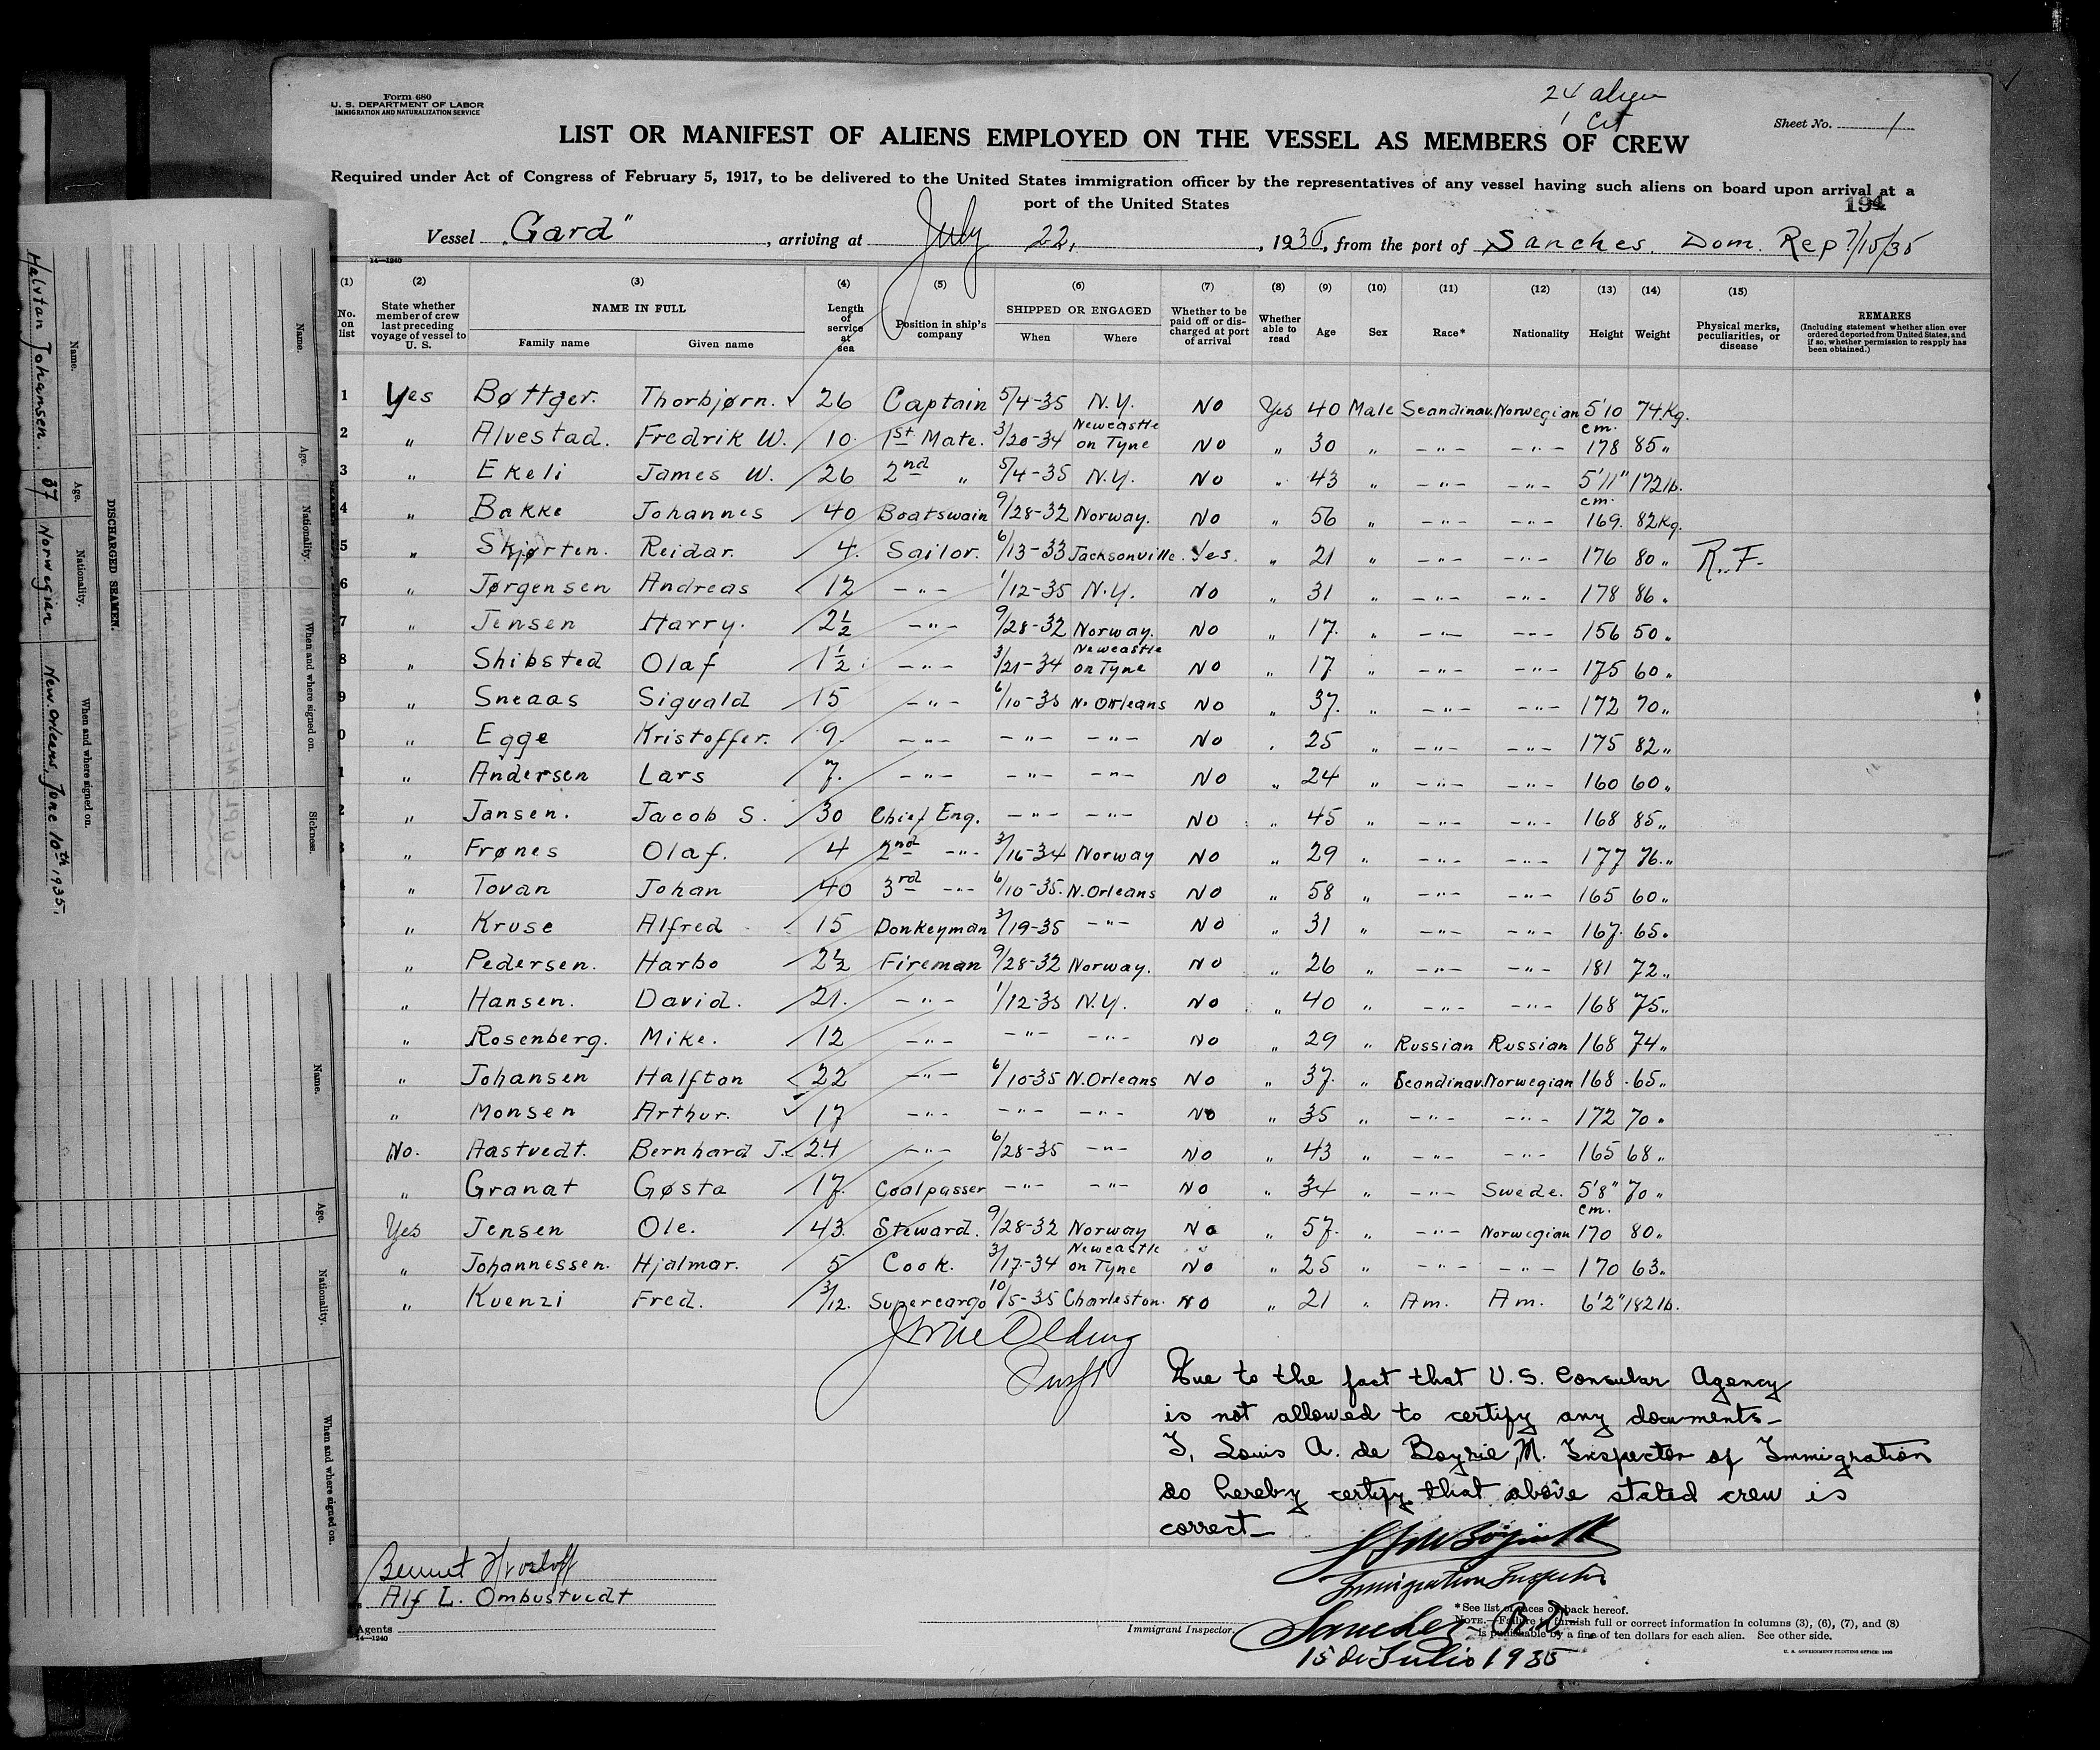 24 alien
1 Cit
Form 680
U. S. DEPARTMENT OF LABOR
IMMIGRATION AND NATURALIZATION SERVICE
Sheet No. 1
LIST OR MANIFEST OF ALIENS EMPLOYED ON THE VESSEL AS MEMBERS OF CREW
Required under Act of Congress of February 5, 1917, to be delivered to the United States immigration officer by the representatives of any vessel having such aliens on board upon arrival at a
port of the United States
194
Vessel "Gard", arriving at July 22, 1935, from the port of Sanches. Dom. Rep 7/15/35
14—1240
(1) (2) (3) (4) (5) (6) (7) (8) (9) (10) (11) (12) (13) (14) (15)
No. on list
State whether member of crew last preceding voyage of vessel to U. S.
NAME IN FULL
Family name Given name
Length of service at sea
Position in ship's company
SHIPPED OR ENGAGED
When Where
Whether to be paid off or discharged at port of arrival
Whether able to read
Age Sex Race* Nationality Height Weight
Physical marks, peculiarities, or disease
REMARKS
(Including statement whether alien ever ordered deported from United States, and if so, whether permission to reapply has been obtained.)
1 Yes Bøttger. Thorbjørn. 26 Captain 5/4-35 N.Y. No Yes 40 Male Scandinav. Norwegian 5'10 74 Kg.
2 " Alvestad. Fredrik W. 10. 1st Mate. 3/20-34 Newcastle on Tyne No " 30 " -"- -"- cm. 178 85 "
3 " Ekeli James W. 26 2nd " 5/4-35 N.Y. No " 43 " -"- -"- 5'11" 172 lb.
4 " Bakke Johannes 40 Boatswain 9/28-32 Norway. No " 56 " -"- -"- cm. 169. 82 Kg.
5 " Skjørten. Reidar. 4. Sailor. 6/13-33 Jacksonville. Yes. " 21 " -"- -"- 176 80 " R.F.
6 " Jørgensen Andreas 12 -"- 1/12-35 N.Y. No " 31 " -"- -"- 178 86 "
7 " Jensen Harry. 2½ -"- 9/28-32 Norway. No " 17. " -"- -"- 156 50 "
8 " Shibsted Olaf 1½ -"- 3/21-34 Newcastle on Tyne No " 17 " -"- -"- 175 60 "
9 " Sneaas Siguald 15 -"- 6/10-35 N. Orleans No " 37. " -"- -"- 172 70 "
0 " Egge Kristoffer. 9. -"- -"- -"- No " 25 " -"- -"- 175 82 "
1 " Andersen Lars 7. -"- -"- -"- No " 24 " -"- -"- 160 60 "
2 " Jansen. Jacob S. 30 Chief Eng. -"- -"- No " 45 " -"- -"- 168 85 "
" Frønes Olaf. 4 2nd -"- 3/16-34 Norway No " 29 " -"- -"- 177 76. "
" Tovan Johan 40 3rd -"- 6/10-35. N. Orleans No " 58 " -"- -"- 165 60 "
" Kruse Alfred 15 Donkeyman 3/19-35 -"- No " 31 " -"- -"- 167. 65 "
" Pedersen. Harbo 2½ Fireman 9/28-32 Norway. No " 26 " -"- -"- 181 72 "
" Hansen. David. 21. -"- 1/12-35 N.Y. No " 40 " -"- -"- 168 75 "
" Rosenberg. Mike. 12 -"- -"- -"- No " 29 " Russian Russian 168 74 "
" Johansen Halfton 22 -"- 6/10-35 N. Orleans No " 37. " Scandinav. Norwegian 168 65 "
" Monsen Arthur. 17 -"- -"- -"- No " 35 " -"- -"- 172 70 "
No. Aastvedt. Bernhard J. 24 -"- 6/28-35 -"- No " 43 " -"- -"- 165 68 "
" Granat Gøsta 17. Coalpasser -"- -"- No " 34 " -"- Swede. 5'8" 70 "
Yes Jensen Ole. 43. Steward. 9/28-32 Norway No " 57. " -"- Norwegian cm. 170 80 "
" Johannessen. Hjalmar. 5 Cook. 3/17-34 Newcastle on Tyne No " 25 " -"- -"- 170 63 "
" Kuenzi Fred. 3/12. Supercargo 10/5-35 Charleston. No " 21 " Am. Am. 6'2" 182 lb.
Due to the fact that U. S. Consular Agency
is not allowed to certify any documents—
I, Louis A. de Boyrie, M. Inspector of Immigration
do hereby certify that above stated crew is
correct—
Immigration Inspector
Sanchez – R.D.
15 de Julio 1935
Alf L. Ombustvedt
Agents
14—1240
Immigrant Inspector.
*See list of races on back hereof.
NOTE.—Failure to furnish full or correct information in columns (3), (6), (7), and (8)
is punishable by a fine of ten dollars for each alien. See other side.
U. S. GOVERNMENT PRINTING OFFICE: 1935
Halvtan Johansen. 37 Norwegian New. Orleans, June 10th 1935.
Name. Age. Nationality. When and where signed on.
DISCHARGED SEAMEN.
Name. Age. Nationality. When and where signed on. Sickness.
Name. Age. Nationality. When and where signed on.